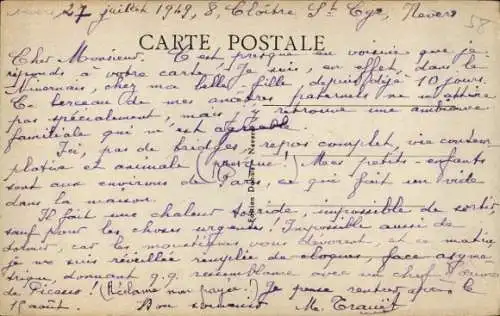 Nevers, 27 juillet 1949, 8, Cloître St Cyr, Nevers
58
CARTE POSTALE
Cher Monsieur. C'est presque en voisine que je
réponds à votre carte. Je suis, en effet, dans le
Nivernais, chez ma belle-fille depuis déjà 10 jours.
Ce berceau de mes ancêtres paternels ne m'attire
pas spécialement, mais j'y retrouve une ambiance
familiale qui m'est agréable.
Ici, pas de bridges, repos complet, vie contem-
plative et animale (presque!) Mes petits-enfants
sont aux environs de Paris, ce qui fait un vide
dans la maison.
Il fait une chaleur torride, impossible de sortir
sauf pour les choses urgentes! Impossible aussi de
dormir, car les moustiques vous dévorent et ce matin
je me suis réveillée remplie de cloques, face asymé-
trique, donnant q.q. ressemblance avec un chef d'œuvre
de Picasso! (Réclame non payée!) Je pense rentrer après le
15 août. Bon souvenir M.